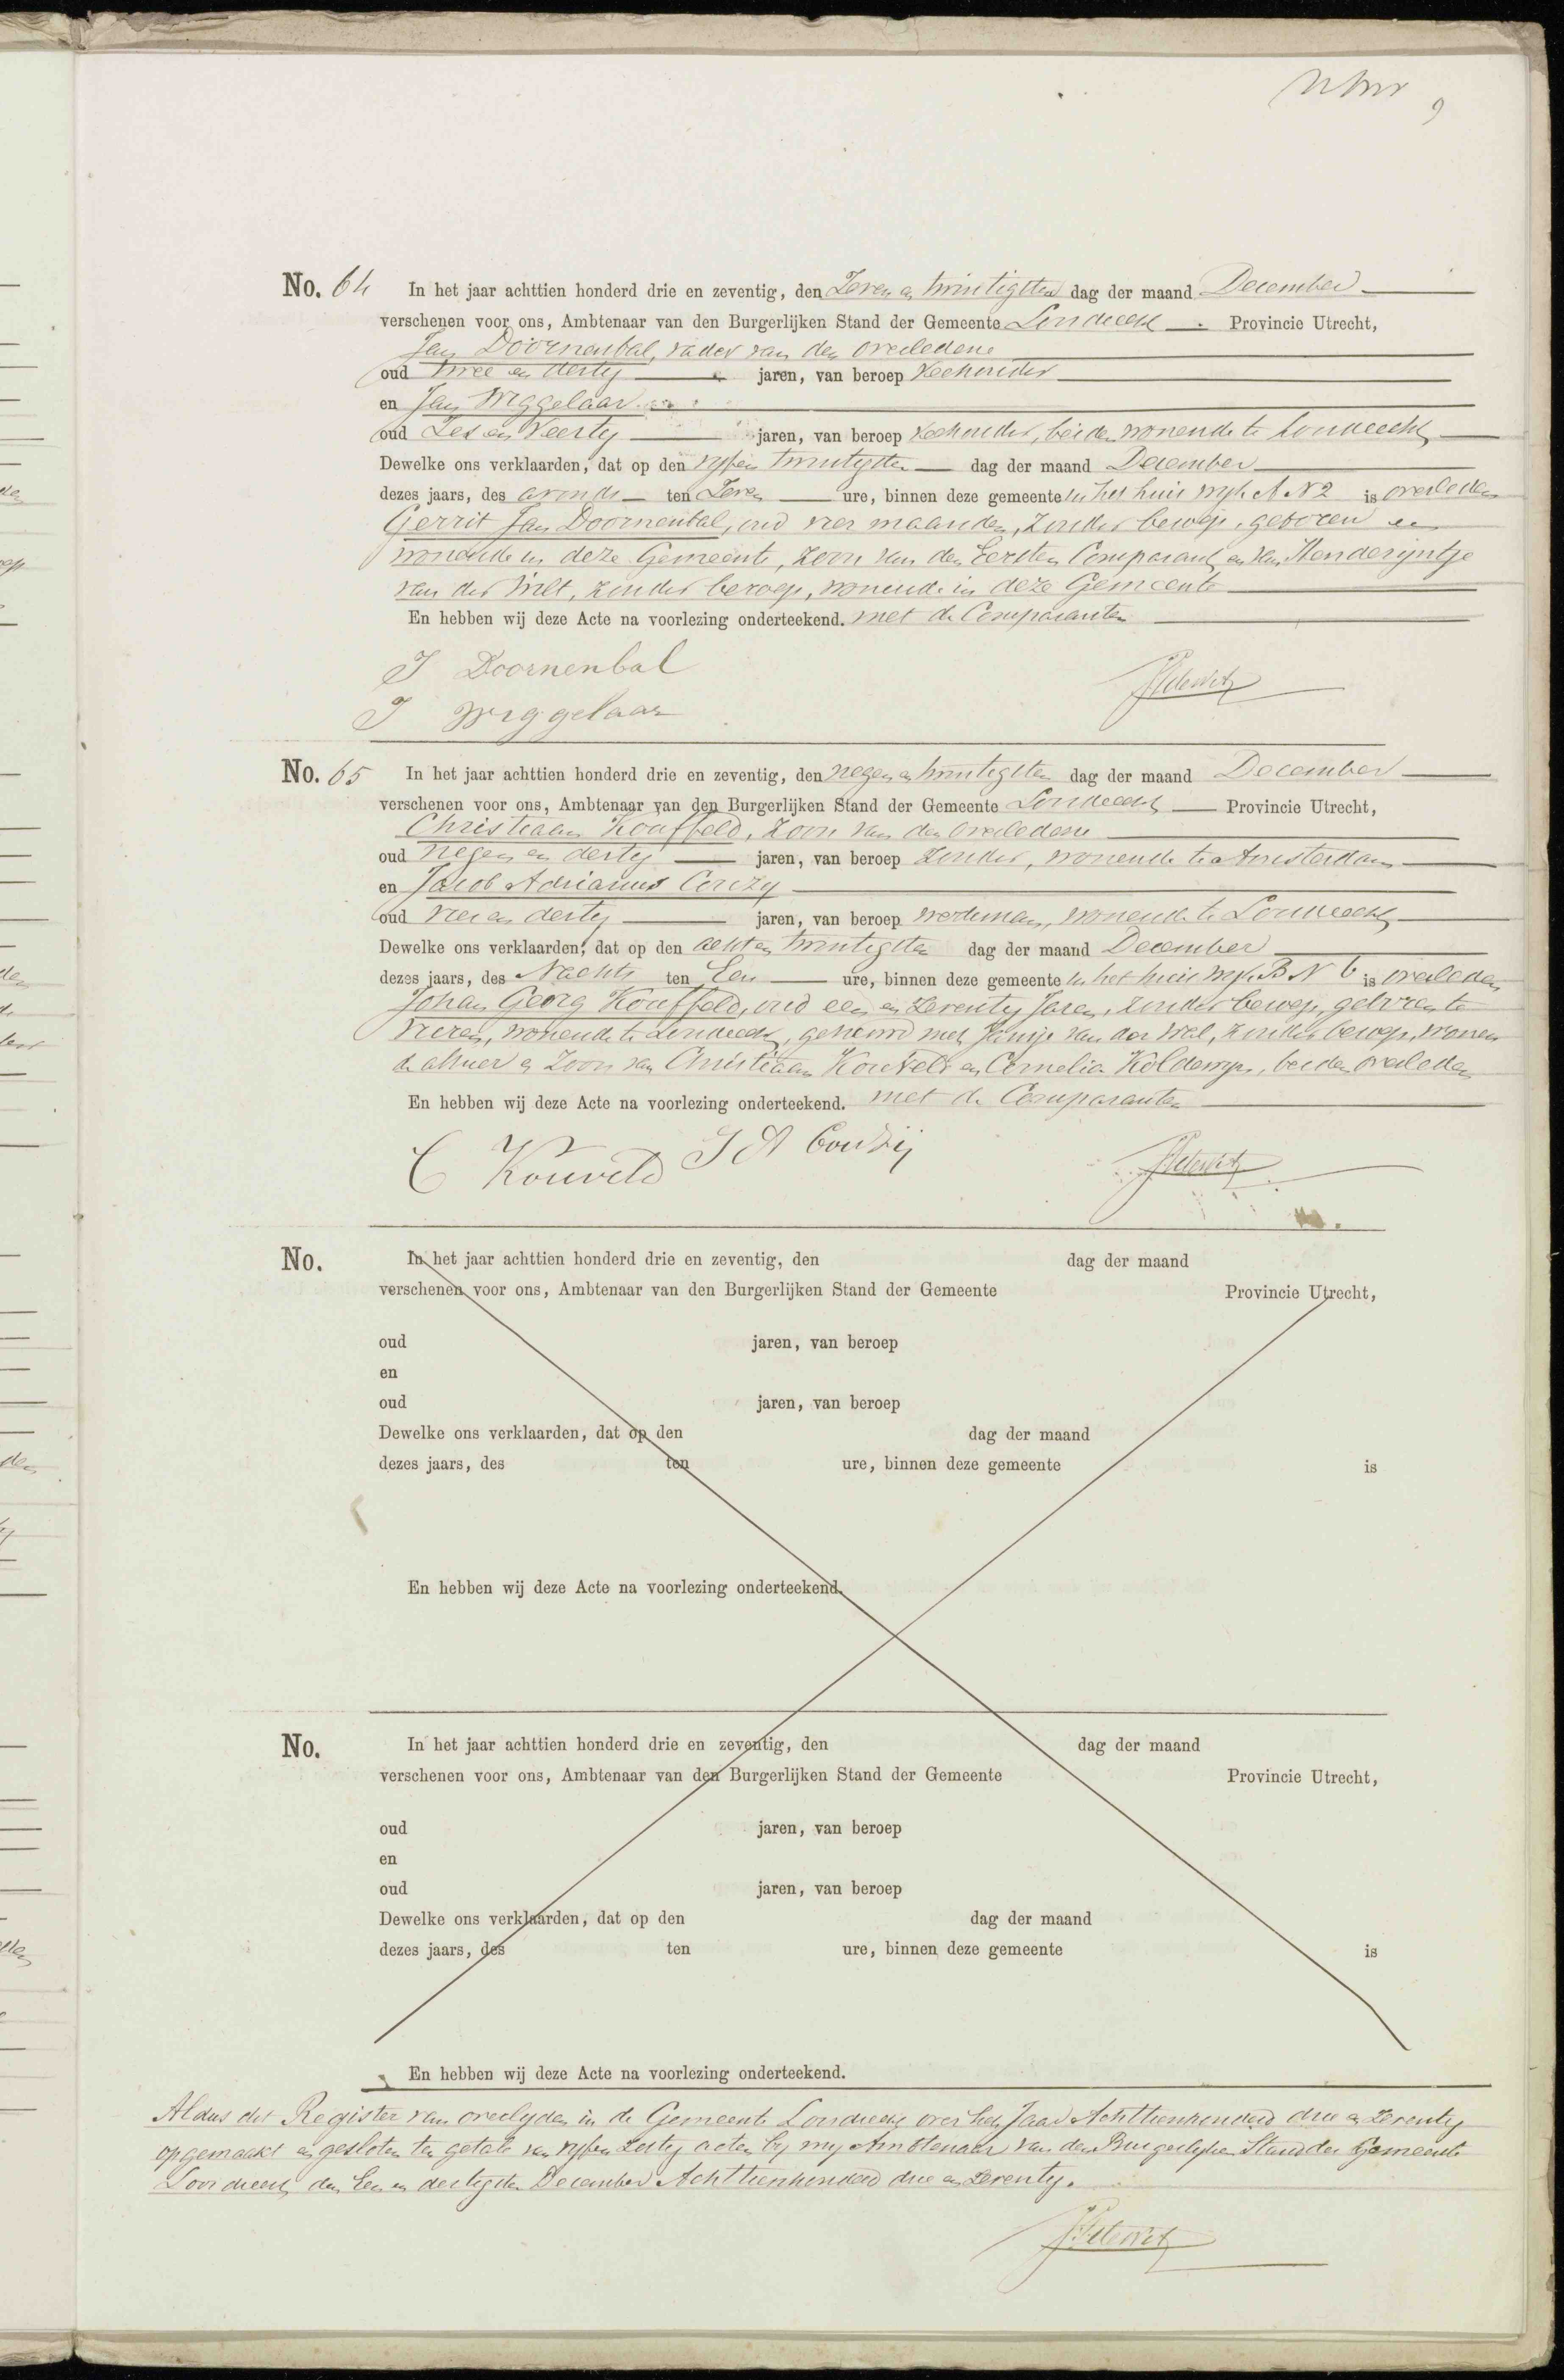 9
No. 64 In het jaar achttien honderd drie en zeventig, den Zeven en twintigsten dag der maand December
verschenen voor ons, Ambtenaar van den Burgerlijken Stand der Gemeente Loosdrecht Provincie Utrecht,
Jan Doornenbal, vader van den overledene
oud twee en dertig jaren, van beroep Veehouder
en Jan Wiggelaar
oud Zes en Veertig jaren, van beroep Veehouder, beiden wonende te Loosdrecht
Dewelke ons verklaarden, dat op den vyf en twintigsten dag der maand December
dezes jaars, des avonds ten Zeven ure, binnen deze gemeente in het huis wyk A N 2 is overleden
Gerrit Jan Doornenbal, oud vier maanden, Zonder beroep, geboren en
wonende in deze Gemeente, Zoon van den Eersten Comparant en van Henderijntje
van der Wilt, zonder beroep, wonende in deze Gemeente
En hebben wij deze Acte na voorlezing onderteekend. met de Comparanten
J Doornenbal
J Wiggelaar
No. 65 In het jaar achttien honderd drie en zeventig, den negen en twintigsten dag der maand December
verschenen voor ons, Ambtenaar van den Burgerlijken Stand der Gemeente Loosdrecht Provincie Utrecht,
Christiaan Kouffeld, Zoon van den Overledene
oud negen en dertig jaren, van beroep Zonder, wonende te Amsterdam
en Jacob Adrianus Couzy
oud vier en dertig jaren, van beroep werkman, wonende te Loosdrecht
Dewelke ons verklaarden, dat op den acht en twintigsten dag der maand December
dezes jaars, des Nachts ten Een ure, binnen deze gemeente in het huis wyk B N 6 is overleden
Johan Georg Kouffeld, oud een en Zeventig Jaren, zonder beroep, geboren te
wonende te Loosdrecht, gehuwd met Jansje van der Wal, zonder beroep, wonen
de alhier en Zoon van Christiaan Kouveld en Cornelia beiden overleden
En hebben wij deze Acte na voorlezing onderteekend. met de Comparanten
C Kouveld J A Couzij
No. In het jaar achttien honderd drie en zeventig, den dag der maand
verschenen voor ons, Ambtenaar van den Burgerlijken Stand der Gemeente Provincie Utrecht,
oud jaren, van beroep
en
oud jaren, van beroep
Dewelke ons verklaarden, dat op den dag der maand
dezes jaars, des ten ure, binnen deze gemeente is
En hebben wij deze Acte na voorlezing onderteekend.
No. In het jaar achttien honderd drie en zeventig, den dag der maand
verschenen voor ons, Ambtenaar van den Burgerlijken Stand der Gemeente Provincie Utrecht,
oud jaren, van beroep
en
oud jaren, van beroep
Dewelke ons verklaarden, dat op den dag der maand
dezes jaars, des ten ure, binnen deze gemeente is
En hebben wij deze Acte na voorlezing onderteekend.
Aldus dit Register van overlyden in de Gemeente Loosdrecht over het Jaar Achttienhonderd drie en Zeventig
opgemaakt en gesloten ten getale van vyf en Zestig acten by my Ambtenaar van den Burgerlyken Stand der Gemeente
Loosdrecht den Een en dertigsten December Achttienhonderd drie en Zeventig.